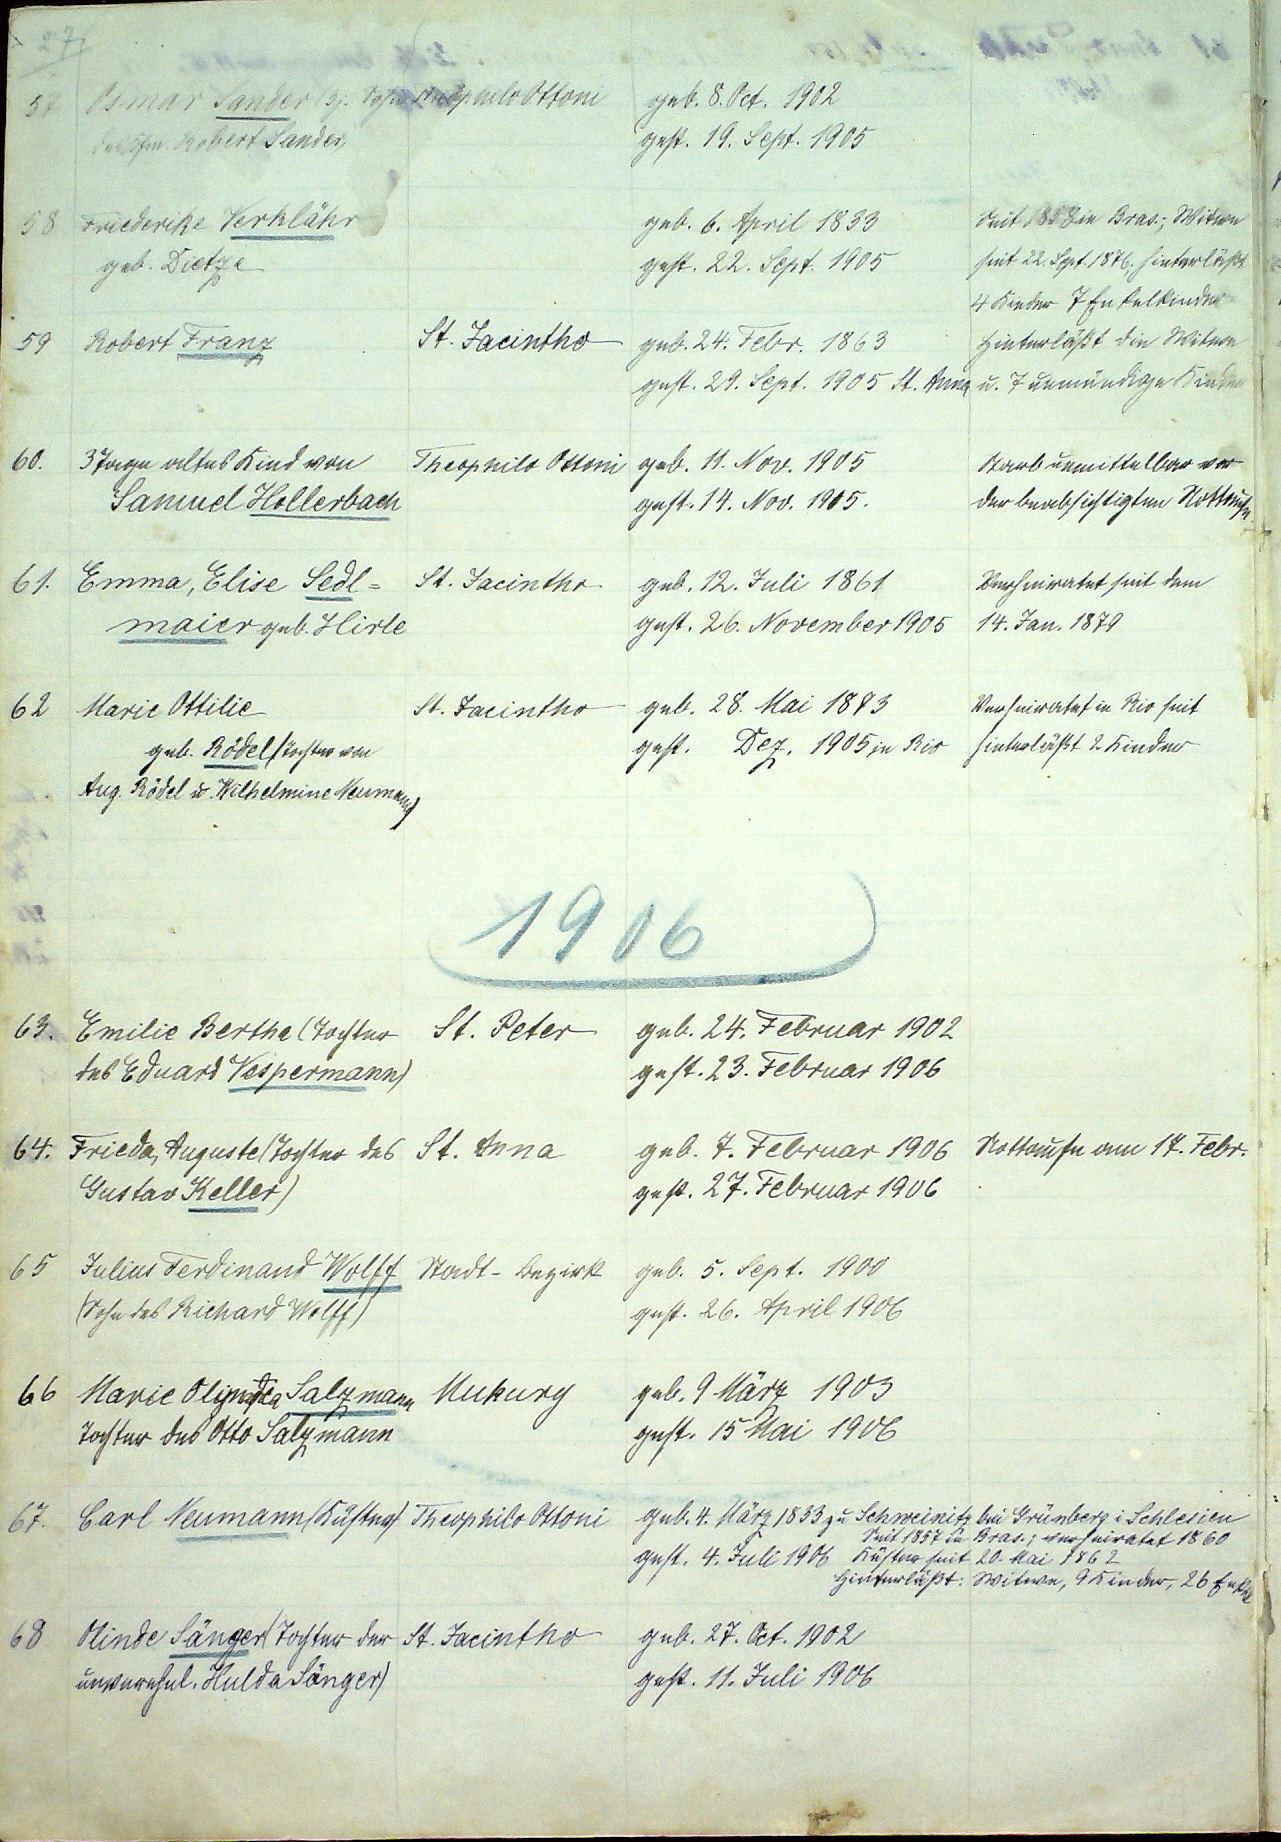 27
57 Osmar Sander Theophilo Ottoni geb. 8. Oct. 1902
Robert Sander gest. 19. Sept. 1905
58 Friederike Verklähr geb. 6. April 1833 Seit 1858 in Bras.; Witwe
geb. Dietze gest. 22. Sept. 1905 seit 22. Sept. 1876, hinterläßt
4 Kinder 7 Enkelkinder
59 Robert Franz St. Jacintho geb. 24. Febr. 1863 Hinterläßt die Witwe
gest. 29. Sept. 1905 St. Anna u. 7 unmündige Kinder
60. 3 Tage altes Kind von Theophilo Ottoni geb. 11. Nov. 1905 Starb unmittelbar vor
Samuel Hollerbach gest. 14. Nov. 1905. der beabsichtigten Nottaufe.
61. Emma, Elise Sedl= St. Jacintho geb. 12. Juli 1861 Verheiratet seit dem
maier geb. Hirle gest. 26. November 1905 14. Jan. 1879
62 Marie Ottilie St. Jacintho geb. 28. Mai 1883 Verheiratet in Rio seit
geb. Rödel (Tochter von gest. Dez. 1905 in Rio hinterläßt 2 Kinder
Aug. Rödel u. Wilhelmine Neumann)
1906
63. Emilie Bertha (Tochter St. Peter geb. 24. Februar 1902
des Eduard Vespermann) gest. 23. Februar 1906
64. Frieda, Auguste (Tochter des St. Anna geb. 7. Februar 1906 Nottaufe am 17. Febr.
Gustav Keller) gest. 27. Februar 1906
65 Julius Ferdinand Wolff Stadt-Bezirk geb. 5. Sept. 1900
(Sohn des Richard Wolff) gest. 26. April 1906
66 Marie Salzmann Mukury geb. 9 März 1903
Tochter des Otto Salzmann gest. 15 Mai 1906
67. Carl Neumann (Küster) Theophilo Ottoni geb. 4. März 1833 zu Schweinitz bei Grünberg i Schlesien
Seit 1857 in Bras.; verheiratet 1860
gest. 4. Juli 1906 Küster seit 20. Mai 1862
Hinterläßt: Witwe, 9 Kinder, 26 Enkel
68 Olinde Sänger (Tochter der St. Jacintho geb. 27. Oct. 1902
unverehel. Hulda Sänger) gest. 11. Juli 1906